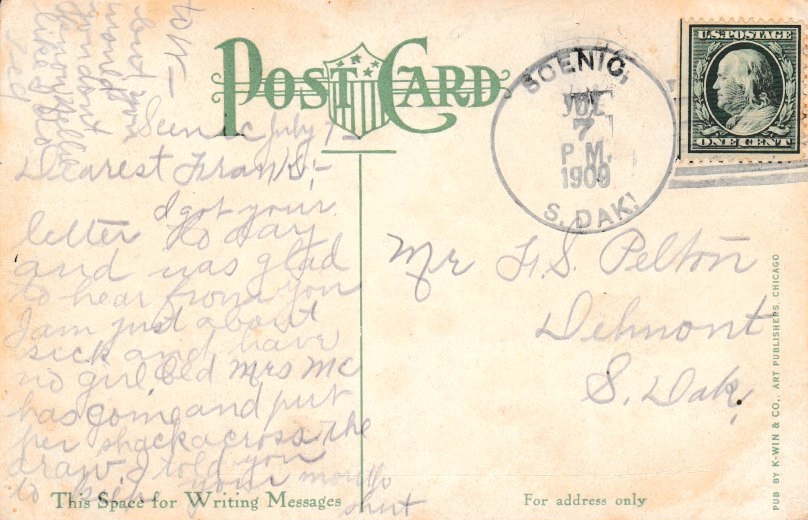 POST CARD
U.S. POSTAGE
ONE CENT
SCENIC,
JUL
7
P M.
1909
S. DAK.
Scenic July 7-
Dearest Frank;-
I got your
letter to day
and was glad
to hear from you
I am just about
sick and have
no girl. Old Mrs Mc
has gone and put
her shack across the
draw. I told you
to keep your mouth
shut
but you
would
you dont
know
like I do
Mr F. S. Pelton
Delmont
S. Dak.
This Space for Writing Messages
For address only
PUB BY K-WIN & CO., ART PUBLISHERS, CHICAGO